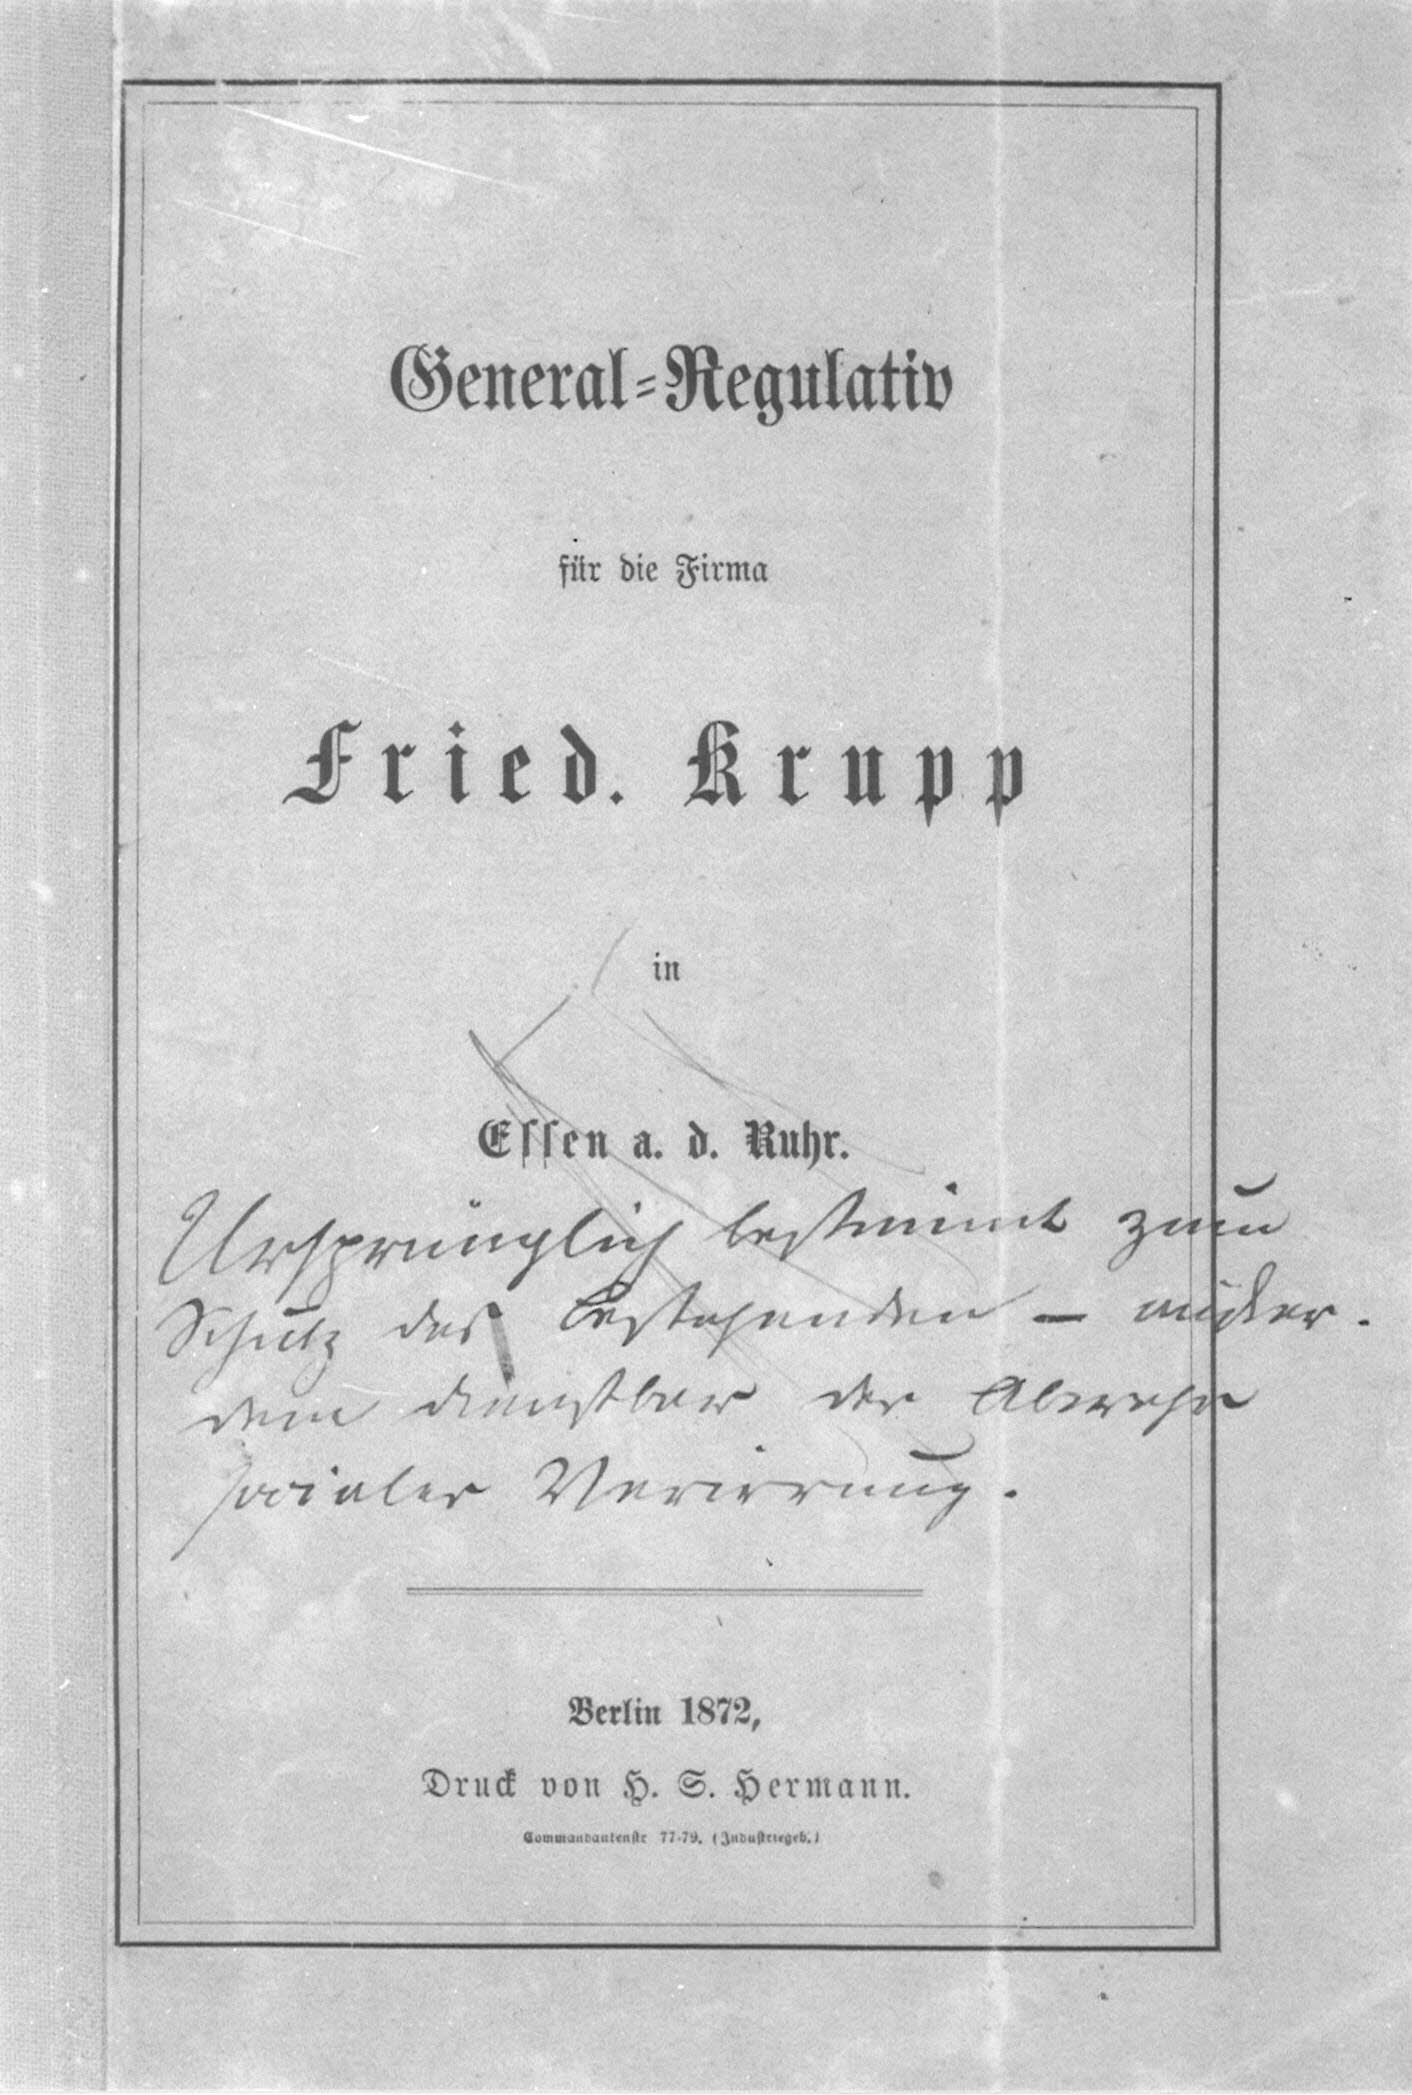 General-Regulativ
für die Firma
Fried. Krupp
in
Essen a. d. Ruhr.
Ursprünglich bestimmt zum
Schutz des Bestehenden –
dem dienstbar der Abwehr
socialer Verirrung.
Berlin 1872,
Druck von H. S. Hermann.
Commandantenstr 77-79. (Industriegeb.)